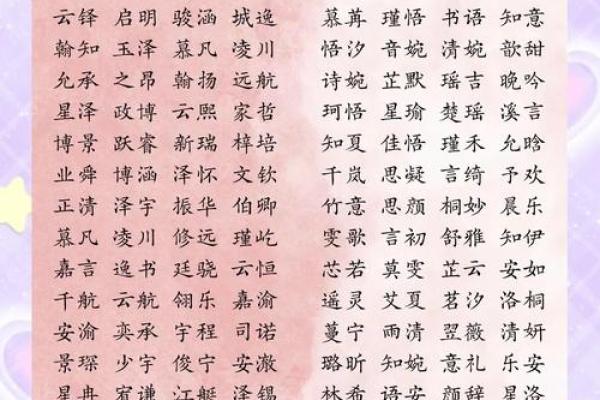 云锌 启明 骏涵 城逸 慕苒 瑾悟 书语 知意
翰知 玉泽 慕凡 凌川 悟汐 音婉 清婉 歆甜
允承 之昂 翰扬 远航 诗婉 芷默 瑶吉 晚吟
星泽 政博 云熙 家哲 珂悟 星瑜 楚瑶 溪言
博景 跃睿 新瑞 梓培 知夏 佳悟 瑾禾 允晗
业舜 博涵 泽怀 文钦 千岚 思凝 言绮 予欢
正清 泽宇 振华 伯卿 竹意 思颜 桐妙 晨乐
慕凡 凌川 修远 瑾屹 雯歌 言初 舒雅 知伊
嘉言 逸书 廷骁 云恒 芯若 莫雯 芷云 安如
千航 云航 翎乐 嘉渝 遥灵 艾夏 茗汐 洛桐
安渝 奕承 宇程 司诺 蔓宁 雨清 翌薇 清妍
景琛 少宇 俊宁 安澈 璐昕 知婉 意礼 乐安
星冉 宥谦 江艇 泽锡 林希 语安 颜辞 星洛